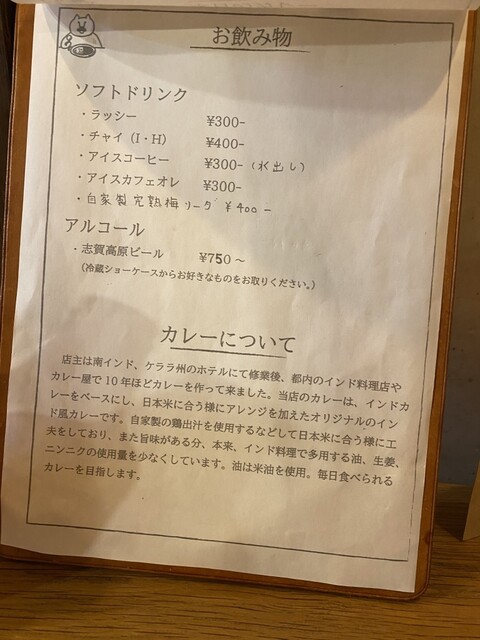 お飲み物
ソフトドリンク
・ラッシー ¥300-
・チャイ（I・H） ¥400-
・アイスコーヒー ¥300-（水出し）
・アイスカフェオレ ¥300-
・自家製完熟梅ソーダ ¥400-
アルコール
・志賀高原ビール ¥750～
（冷蔵ショーケースからお好きなものをお取りください。）
カレーについて
店主は南インド、ケララ州のホテルにて修業後、都内のインド料理店や
カレー屋で10年ほどカレーを作って来ました。当店のカレーは、インドカ
レーをベースにし、日本米に合う様にアレンジを加えたオリジナルのイン
ド風カレーです。自家製の鶏出汁を使用するなどして日本米に合う様に工
夫をしており、また旨味がある分、本来、インド料理で多用する油、生姜、
ニンニクの使用量を少なくしています。油は米油を使用。毎日食べられる
カレーを目指します。